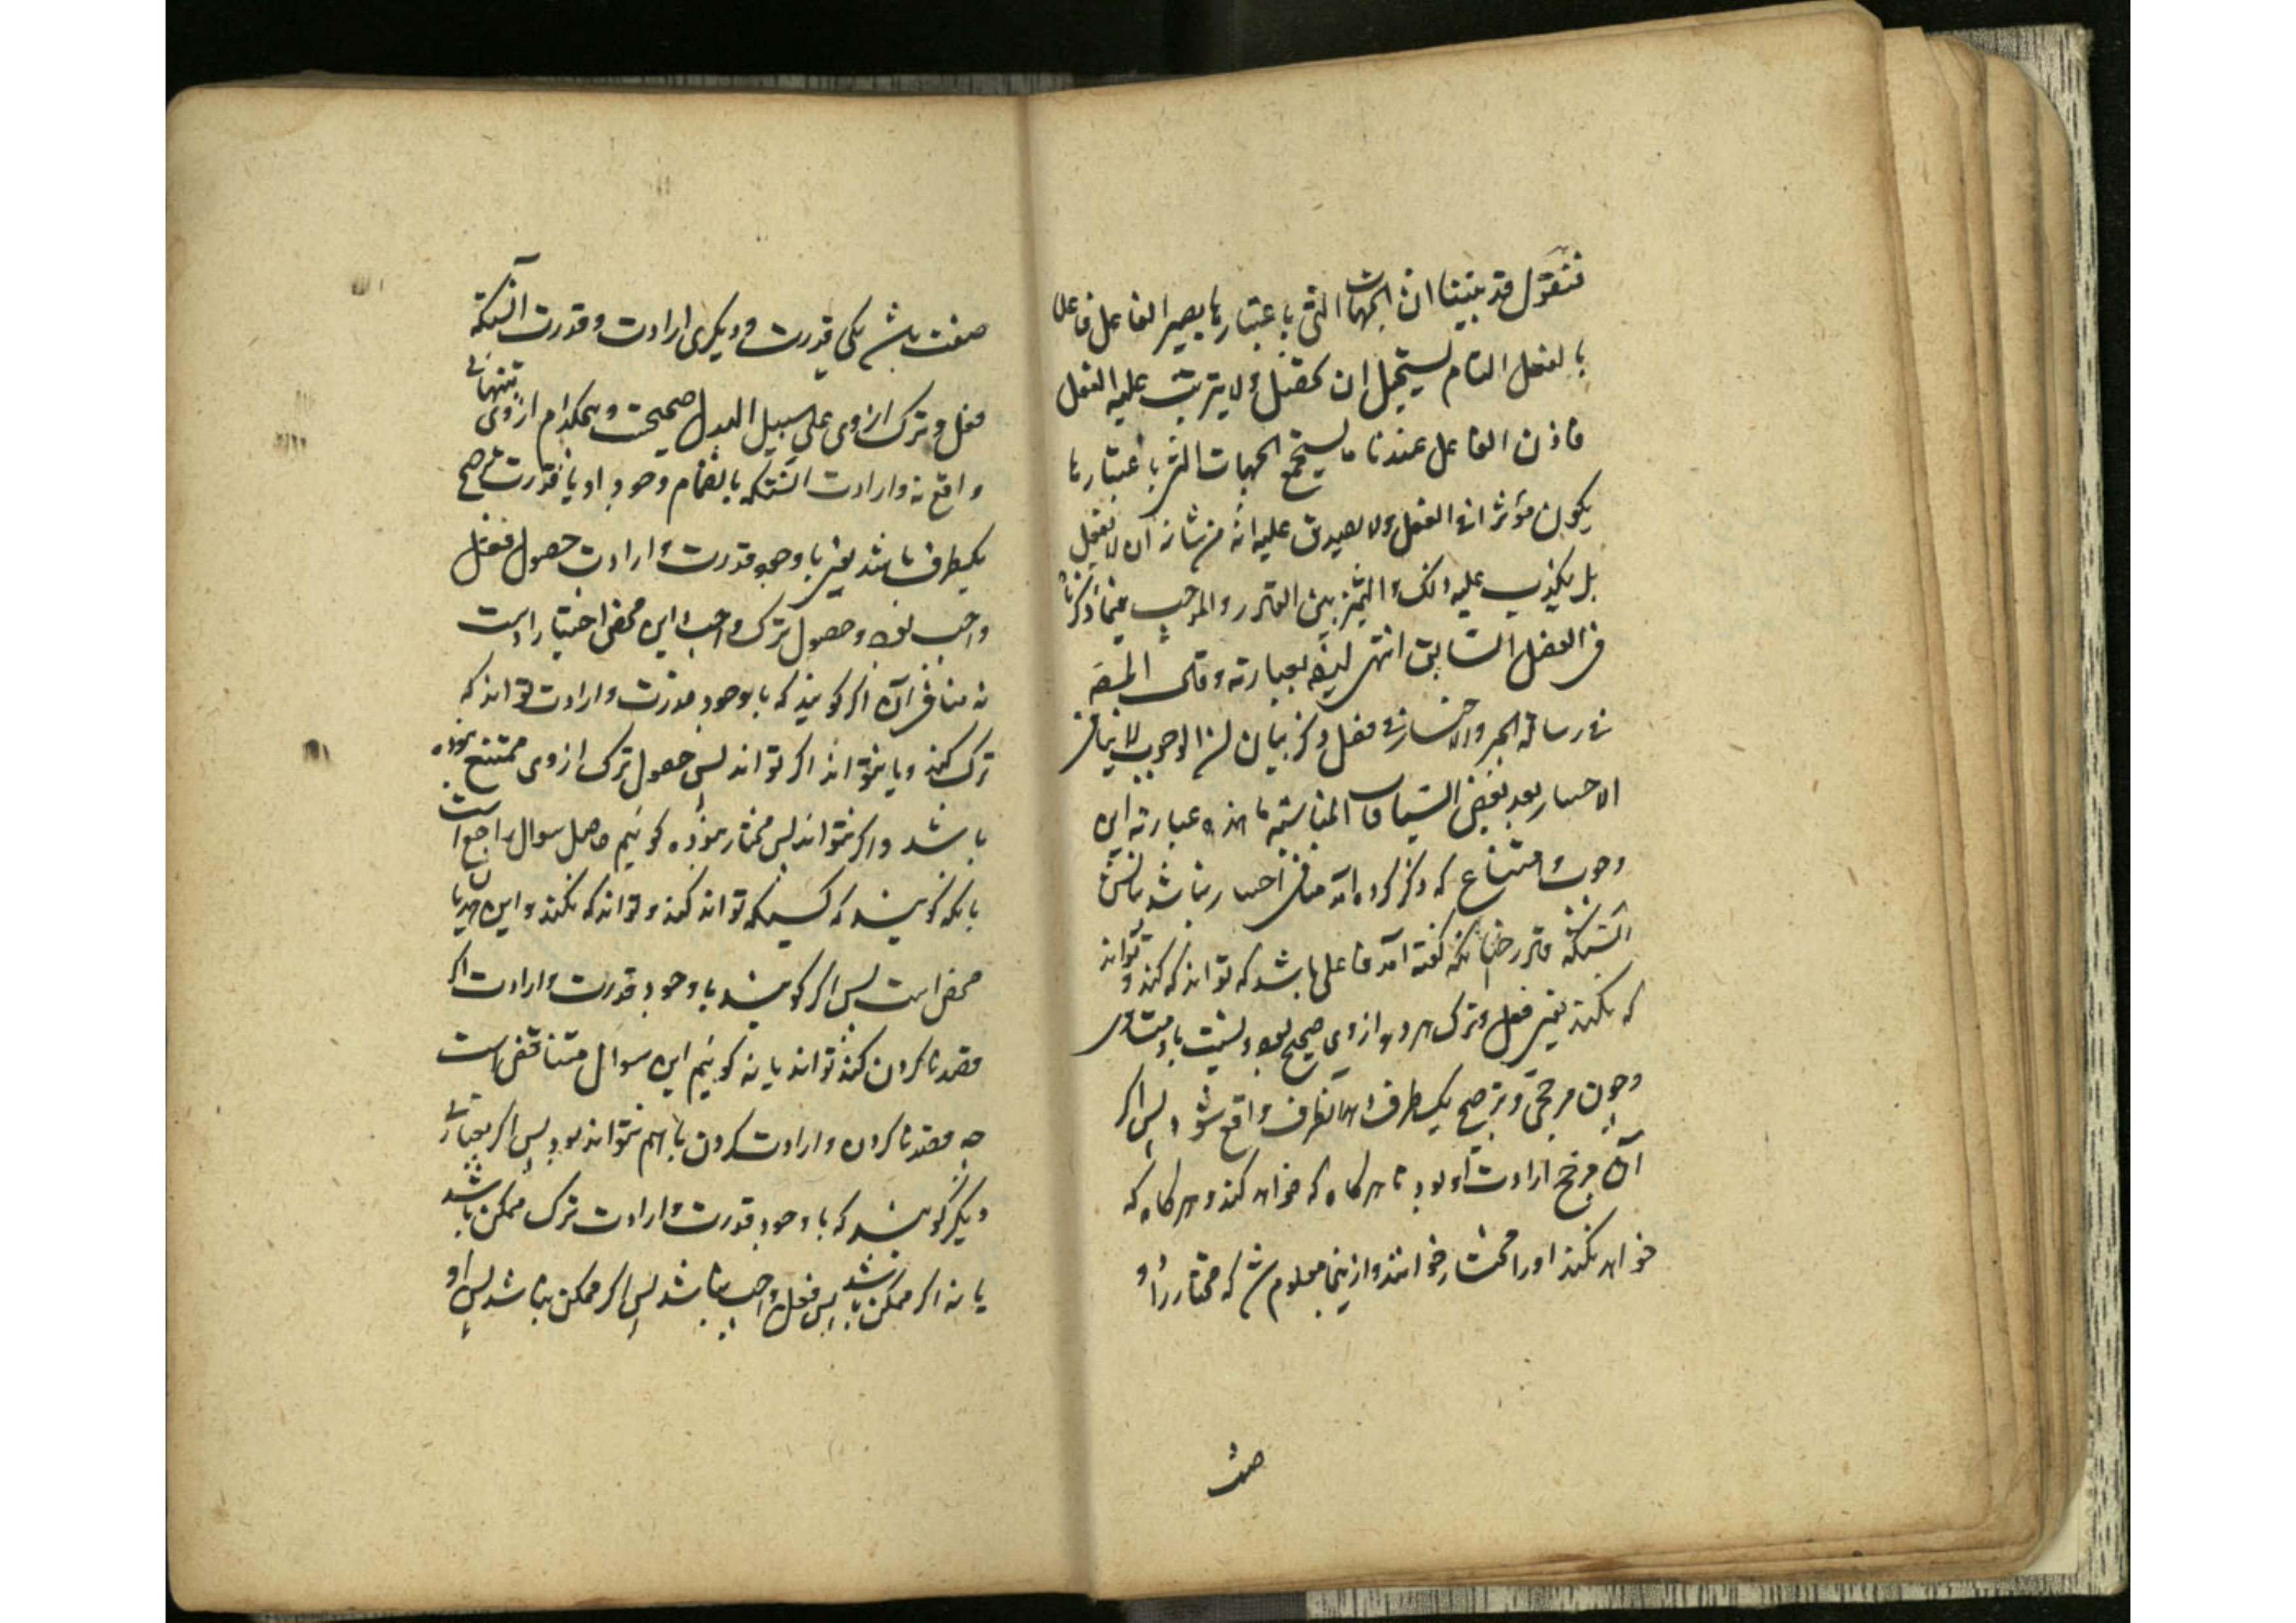 فنقول قد بينا ان الجهات التی باعتبارها یصیر الفاعل فاعلا
بالفعل التام یستحیل ان تحصل ولا یترتب علیه الفعل
فاذن الفاعل عندنا ما یستجمع الجهات التی باعتبارها
یکون مؤثرا فی الفعل ولا یصدق علیه انه من شانه ان لا یفعل
بل یکذب علیه ذلک و التمیز بین القادر والموجب بما ذکرناه
فی الفصل السابق انتهی بعبارته وقال المصنف
فی رسالة الجبر والاختیار فی فصل ذکر بیان ان الوجوب لا ینافی
الاختیار بعد بعض السیاقات المناسبة ما هذه عبارته این
وجوب و امتناع که ذکر کرده آمد منافی اختیار نباشد بیانش
آنستکه قادر چنانکه گفته آمد فاعلی باشد که تواند که کند و تواند
که نکند یعنی فعل و ترک هر دو ازوی صحیح بود و نسبت با او متساوی
و چون مرجحی و ترجیح یکطرف دهد آنطرف واقع شود پس اگر
آن مرجح ارادت او بود تا هرگاه که خواهد کند و هرگاه که
خواهد نکند او را مختار خوانند و ازینجا معلوم شد که مختار را دو
صفت
صفت باشد یکی قدرت و دیگری ارادت و قدرت آنستکه
فعل و ترک ازوی علی سبیل البدل صحیحست و هیچکدام ازوی بتنهائی
واقع نه و ارادت آنستکه بانضمام وجود او با قدرت ترجیح
یکطرف باشد یعنی با وجود قدرت و ارادت حصول فعل
واجب بود و حصول ترک و اجب و این محض اختیار است
نه منافی آن اگر گویند که با وجود قدرت و ارادت تواند که
ترک کند و یا نتواند اگر تواند پس حصول ترک ازوی ممتنع نبوده
باشد و اگر نتواند پس مختار نبوده گوئیم حاصل سوال راجع است
بانکه گویند که کسیکه تواند کند و تواند که نکند و این هذیان
محض است پس اگر گویند با وجود قدرت و ارادت اگر
قصد ناکردن کند تواند یا نه گوئیم این سوال متناقض است
چه قصد ناکردن و ارادت کردن با هم نتواند بود پس اگر بعبارتی
دیگر گویند که با وجود قدرت و ارادت ترک ممکن باشد
یا نه اگر ممکن باشد پس فعل واجب نباشد پس اگر ممکن نباشد پس او